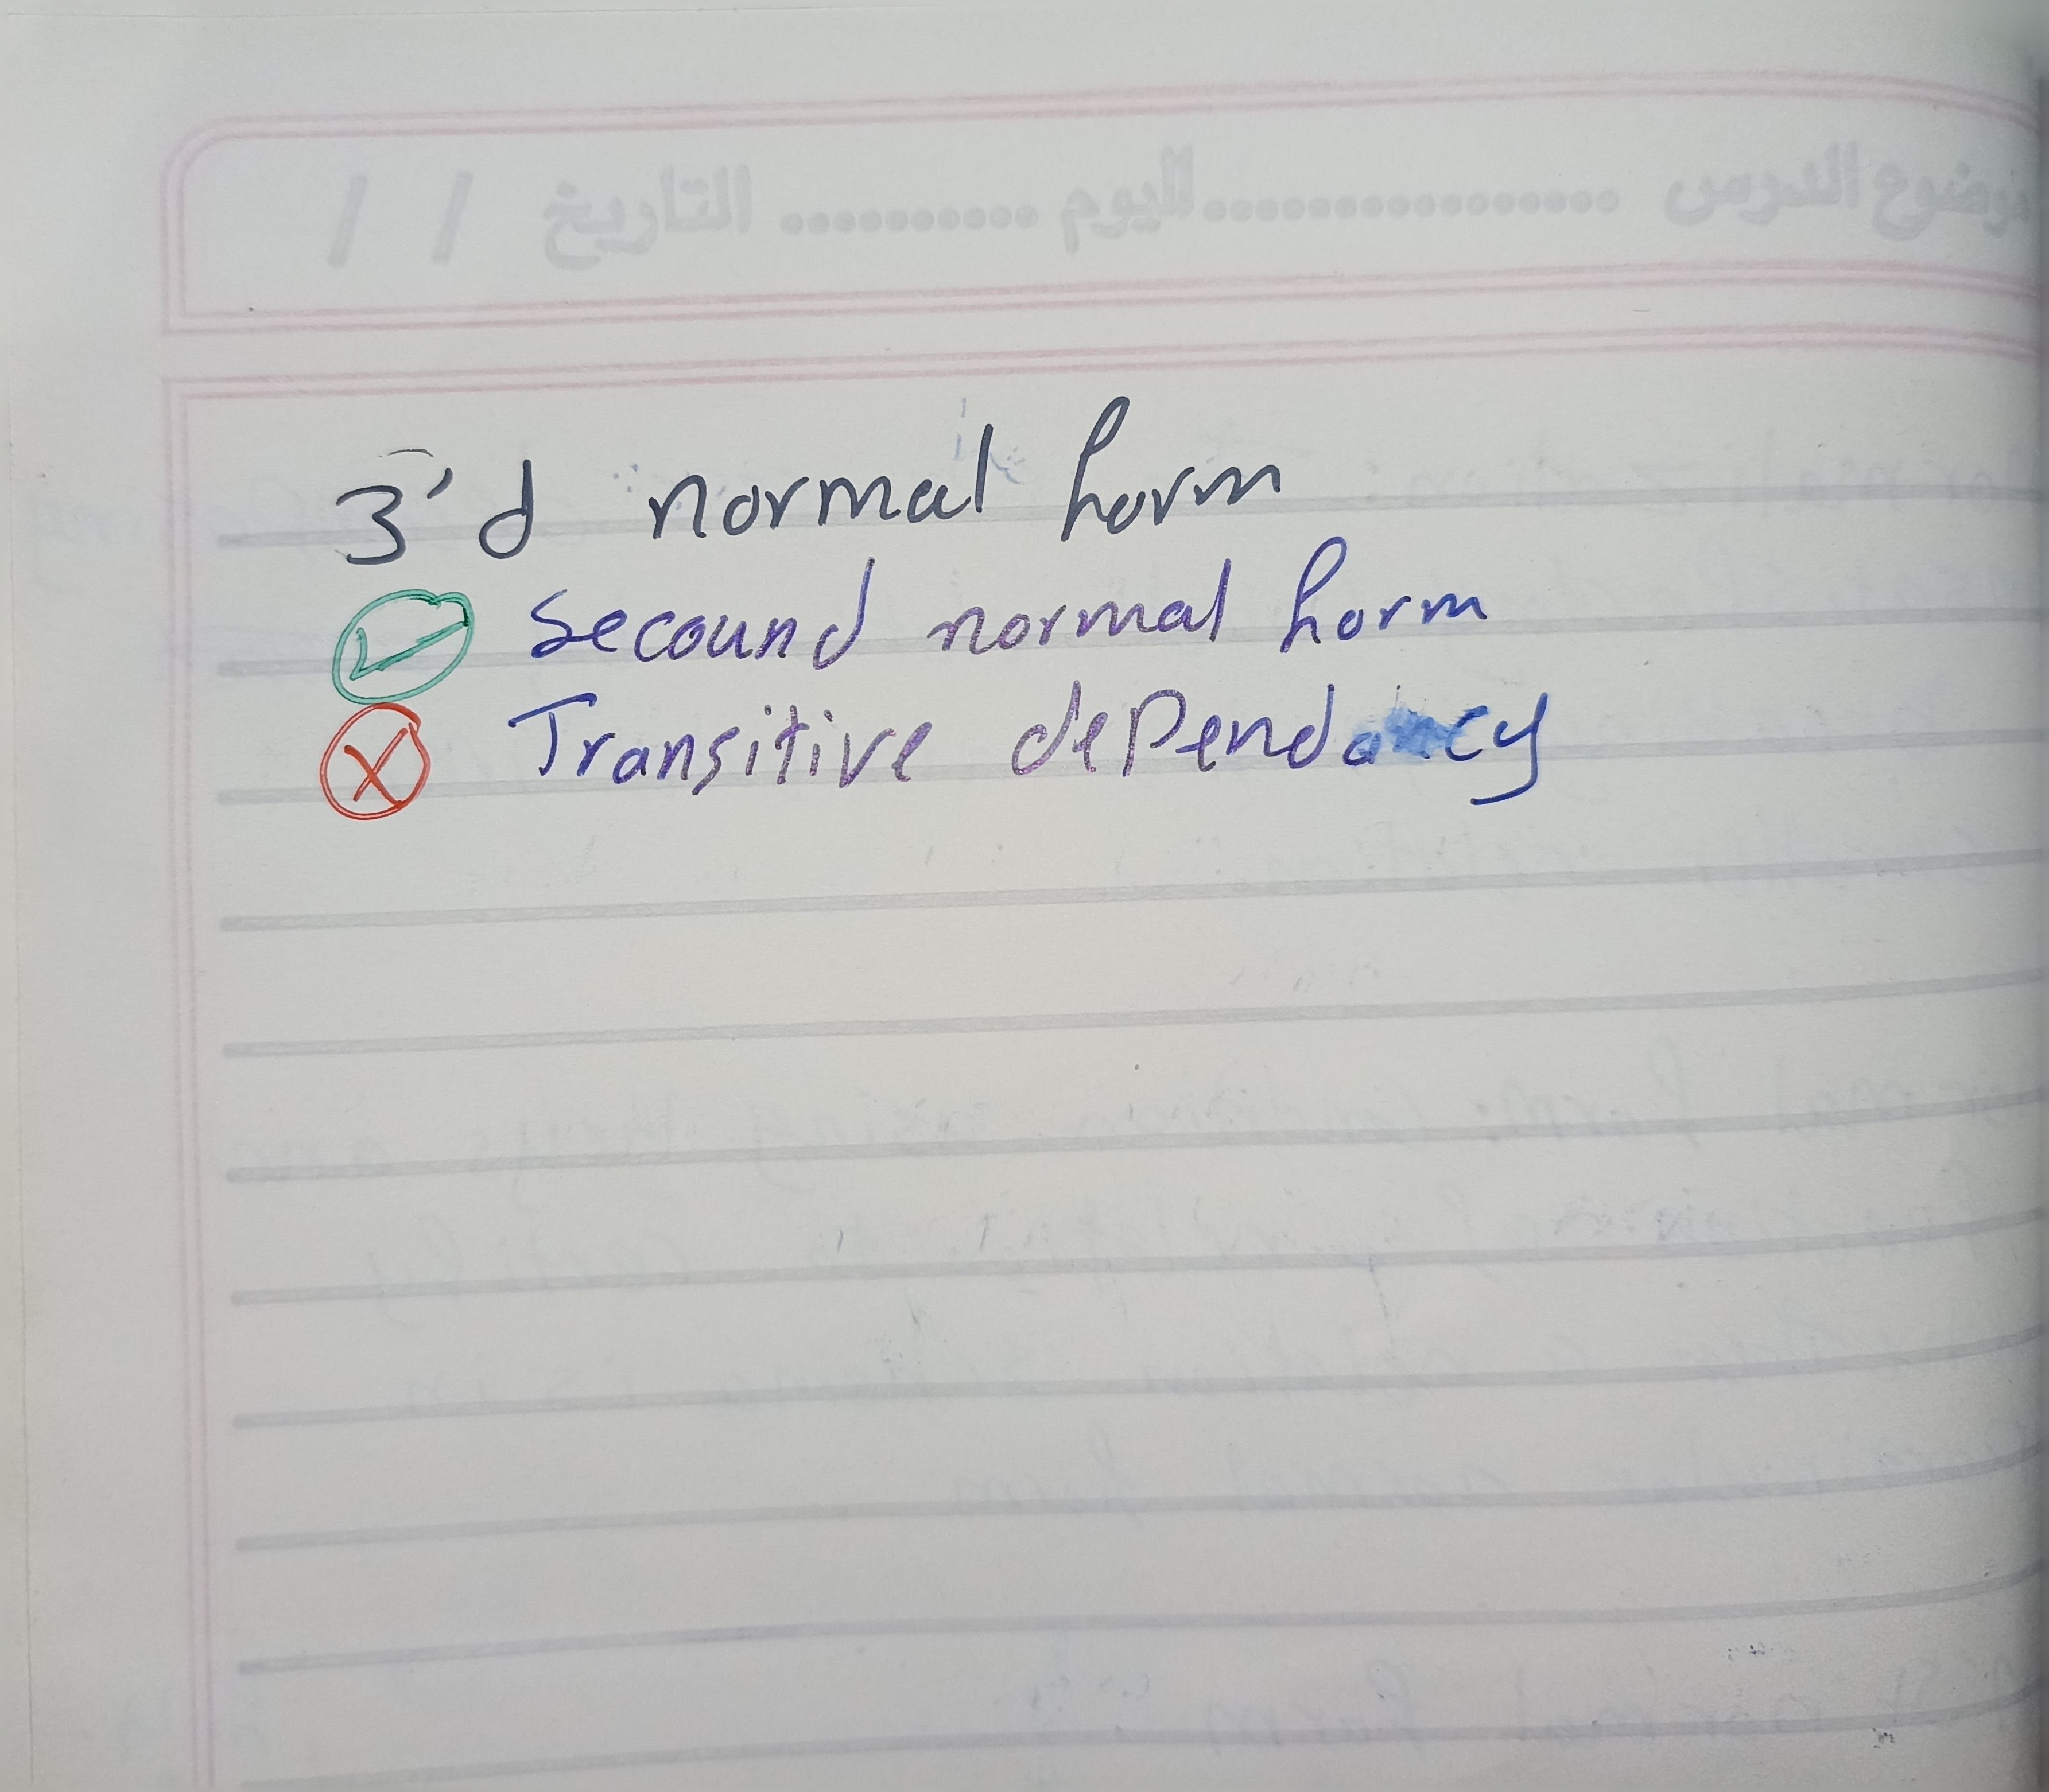 موضوع الدرس ................. اليوم ........... التاريخ / /
3'd normal form
Secound normal form
Transitive dependancy